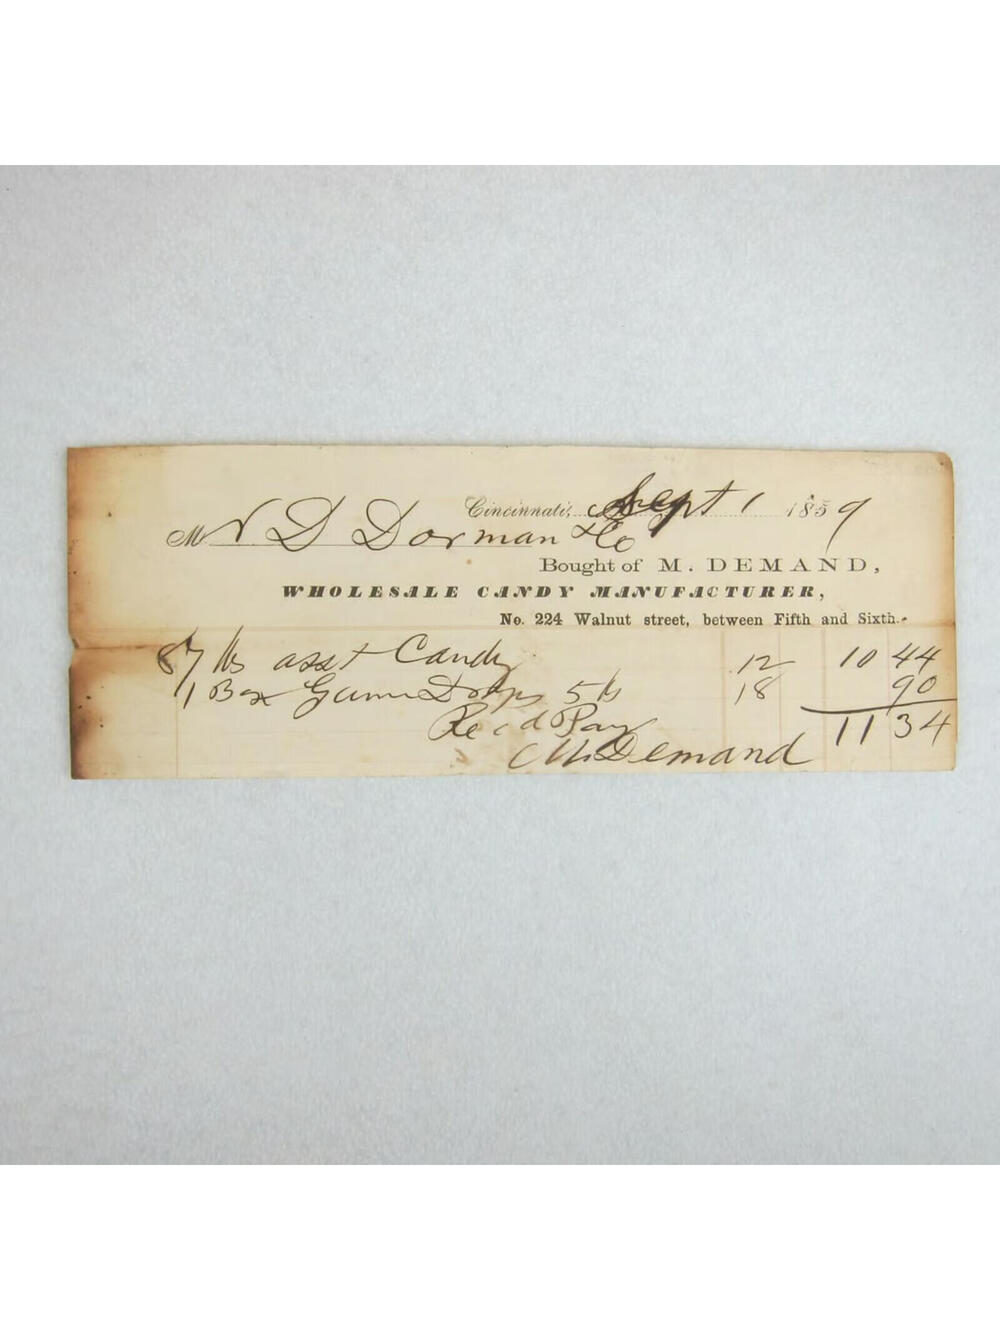 Cincinnati, Sept 1 1859
Mr D Dorman & Co
Bought of M. DEMAND,
WHOLESALE CANDY MANUFACTURER,
No. 224 Walnut street, between Fifth and Sixth.
87 lbs asst Candy 12 10 44
1 Box Gum Drops 5 lbs 18 90
Rec'd Pay 11 34
M. Demand